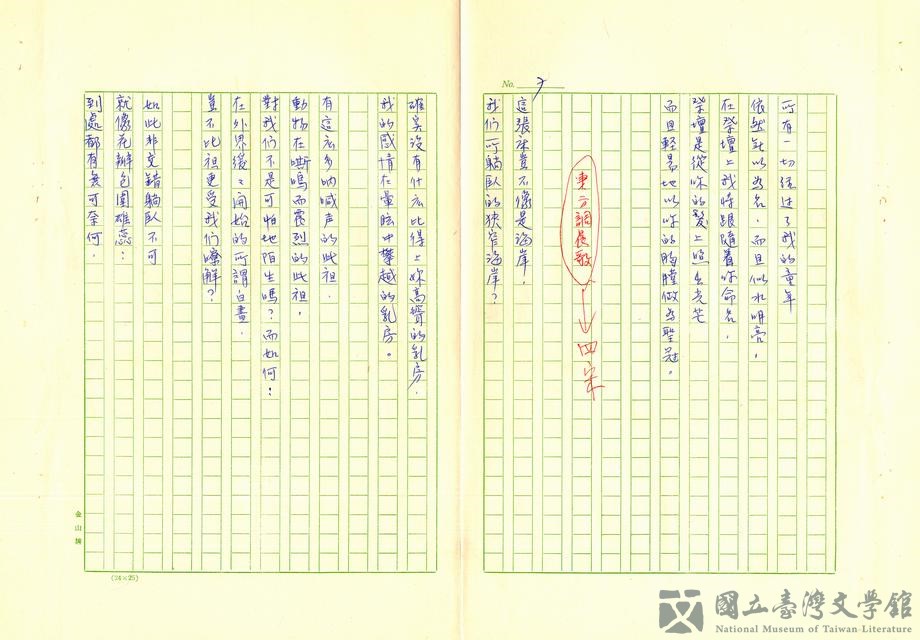 No. 7
所有一切經过了我的童年
依然能以為名，而且似水明亮，
在祭壇上我將跟隨着你命名，
祭壇是從你的髮上照出光芒
而且輕易地以你的胸膛做為聖冠。
四宋
這張床豈不像是海岸，
我们所躺臥的狹窄海岸？
確実沒有什広比得上妳高聳的乳房，
我的感情在暈眩中攀越的乳房。
有這広多吶喊声的此祖，
動物在嘶鳴而震烈的此祖，
對我们不是可怕地陌生嗎？而如何：
在外界緩々開始的所謂白晝，
豈不比祖更受我们瞭解？
如此非交錯躺臥不可
就像花瓣包圍雄蕊：
到處都有無可奈何，
金山牌
(24×25)
國立臺灣文学館
National Museum of Taiwan Literature